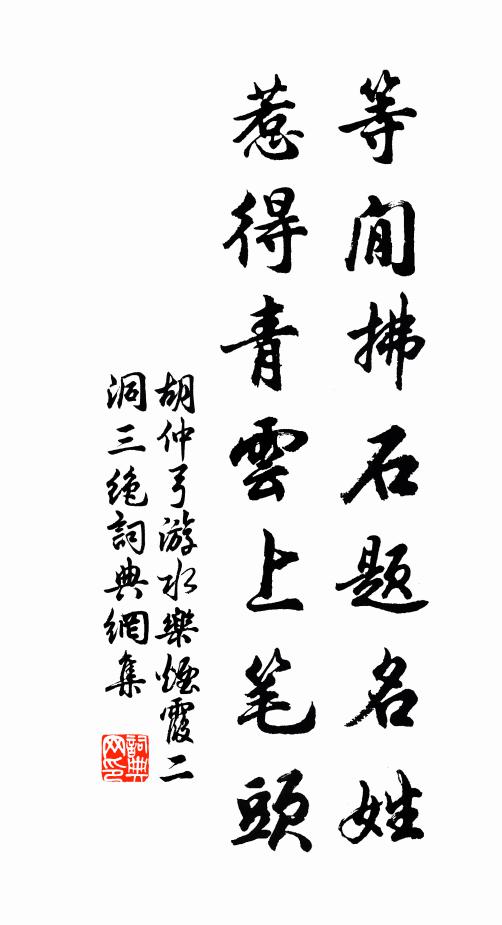 等閒拂石题名姓
惹得青雲上笔頭
胡仲弓游水樂煙霞二
洞三绝詞典網集
詞典网印